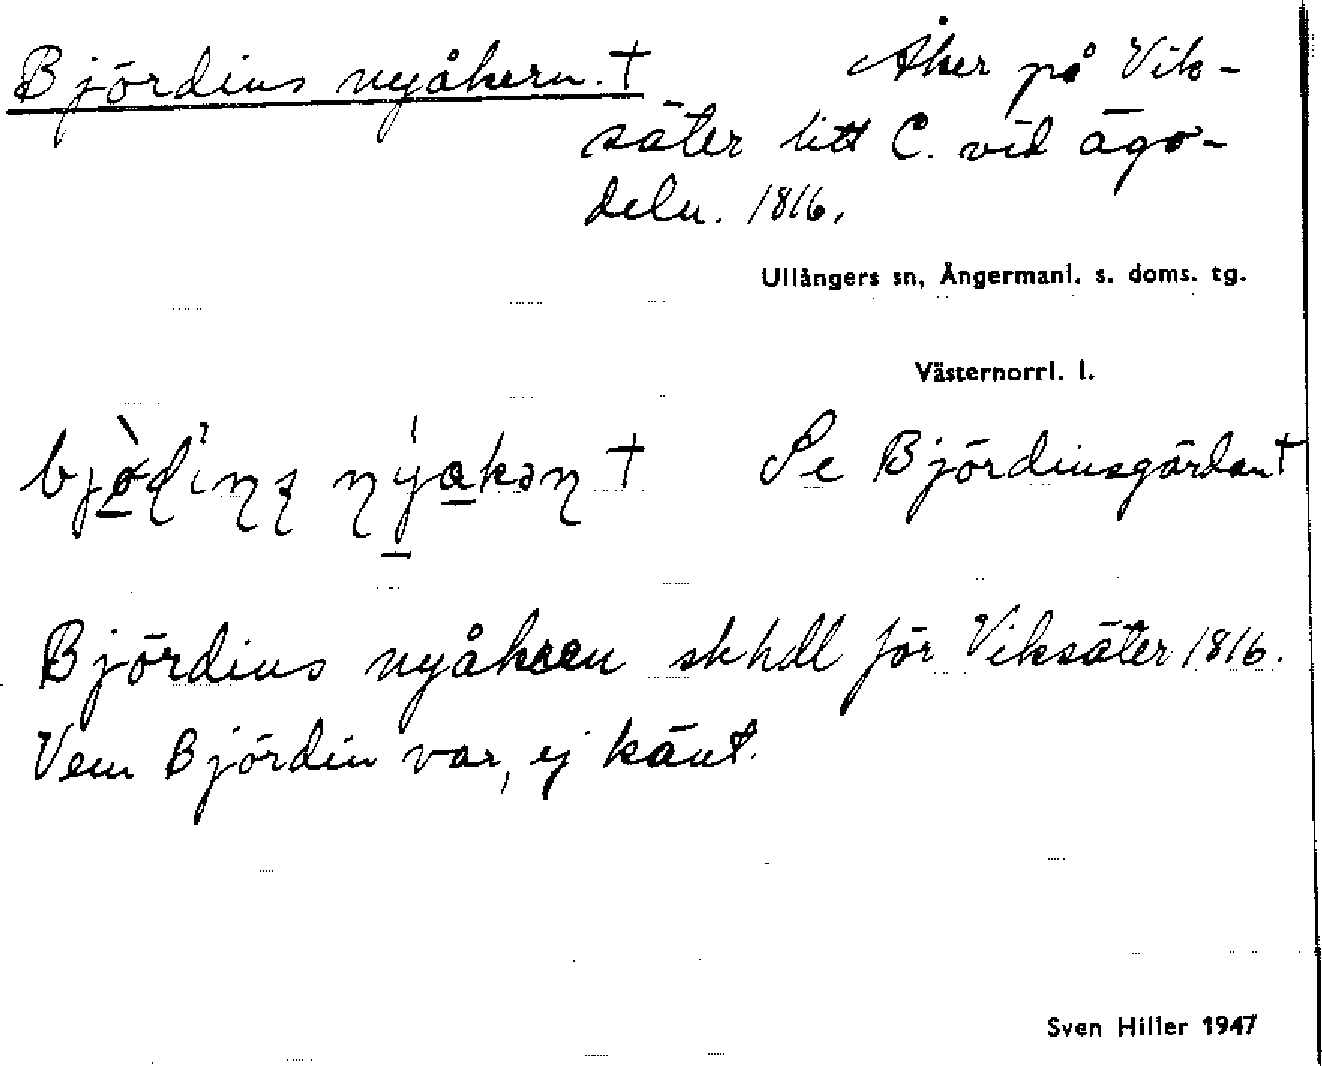 Björdins nyåkern. † Åker på Vik-
säter litt C. vid ägo-
deln. 1816.
Ullångers sn, Ångermanl. s. doms. tg.
Västernorrl. l.
Se Björdinsgärdan †
Björdins nyåkren skhdl för Viksäter 1816.
Vem Björdin var, ej känt.
Sven Hiller 1947